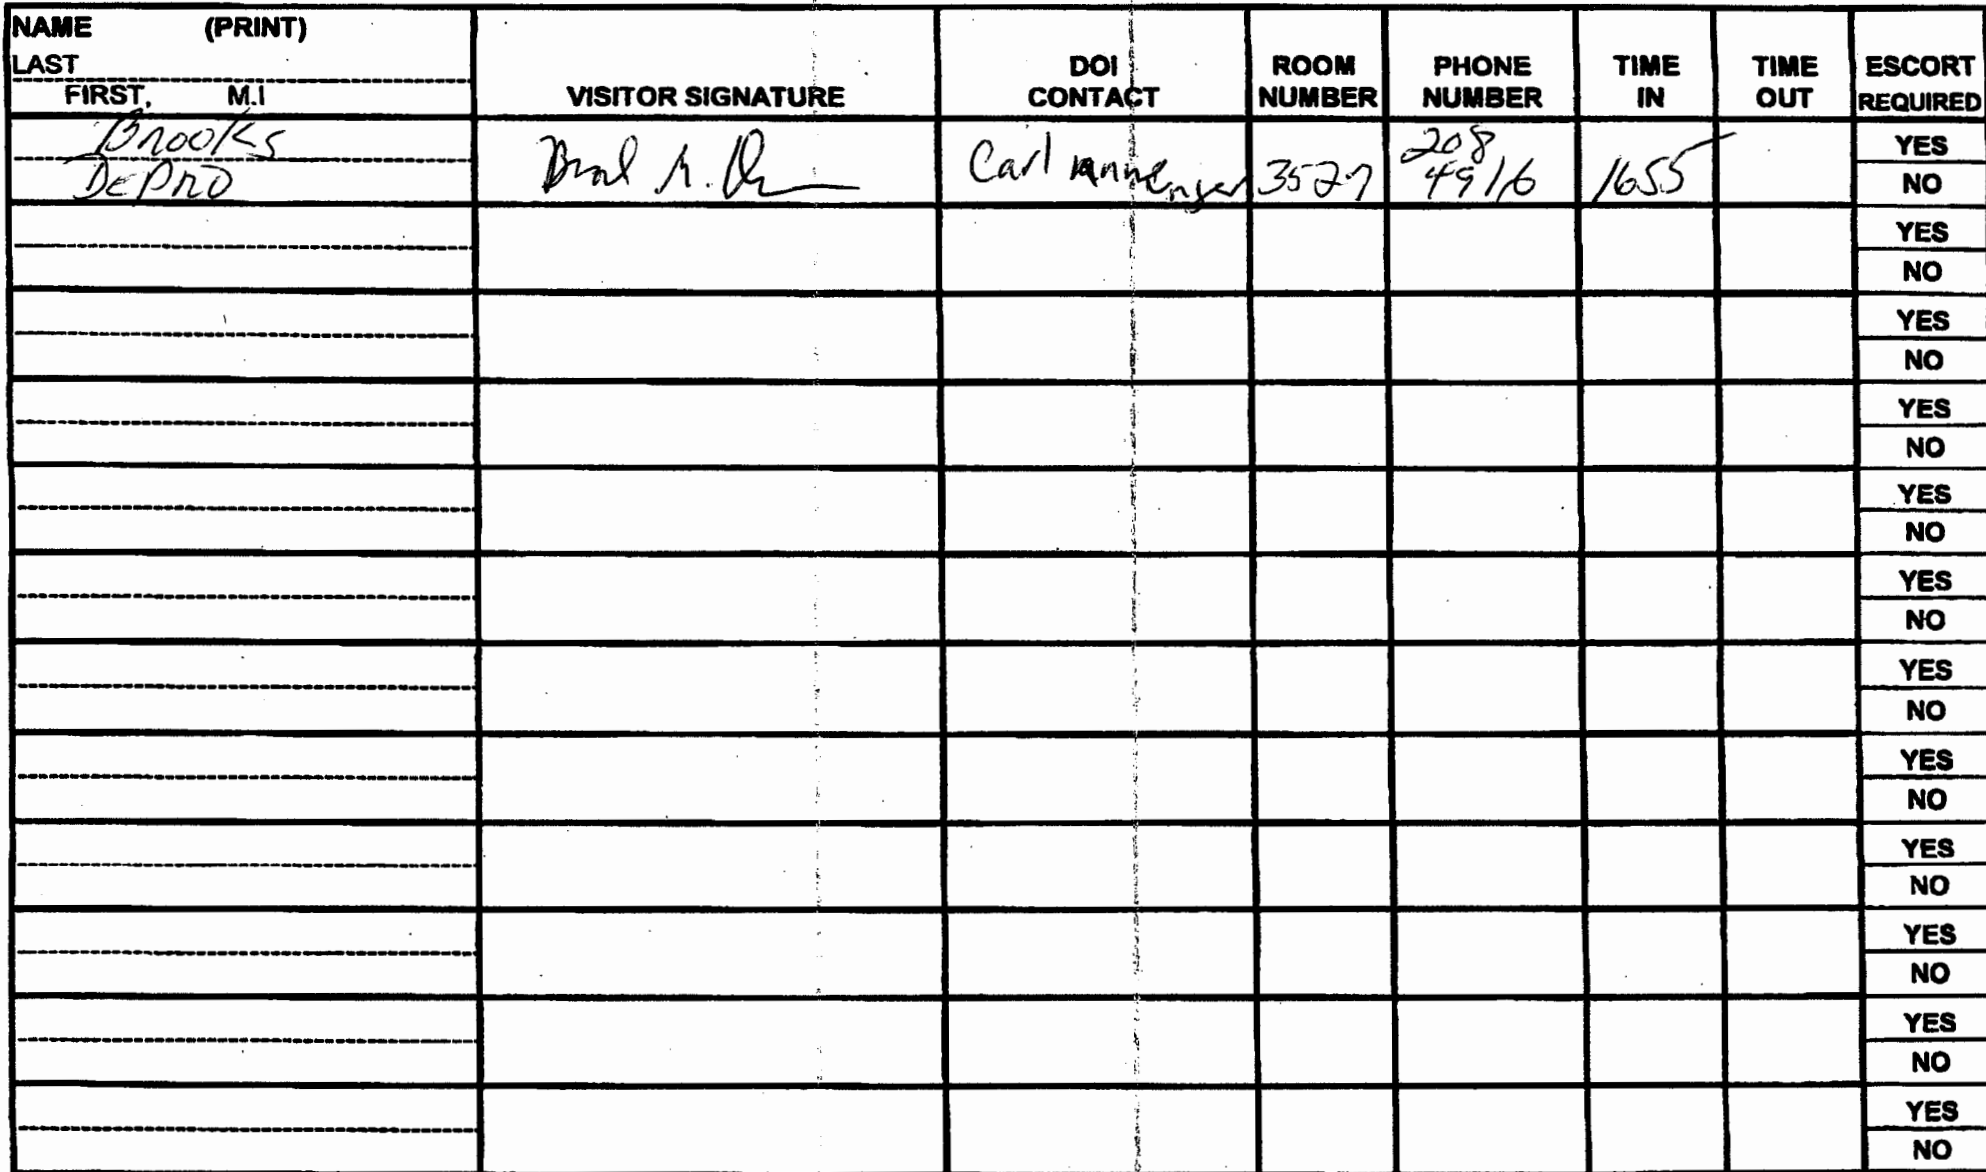 NAME (PRINT)
LAST
FIRST, M.I
VISITOR SIGNATURE
DOI CONTACT
ROOM NUMBER
PHONE NUMBER
TIME IN
TIME OUT
ESCORT REQUIRED
Brooks
DEPRO
Carl
3527
208
4916
1655
YES
NO
YES
NO
YES
NO
YES
NO
YES
NO
YES
NO
YES
NO
YES
NO
YES
NO
YES
NO
YES
NO
YES
NO